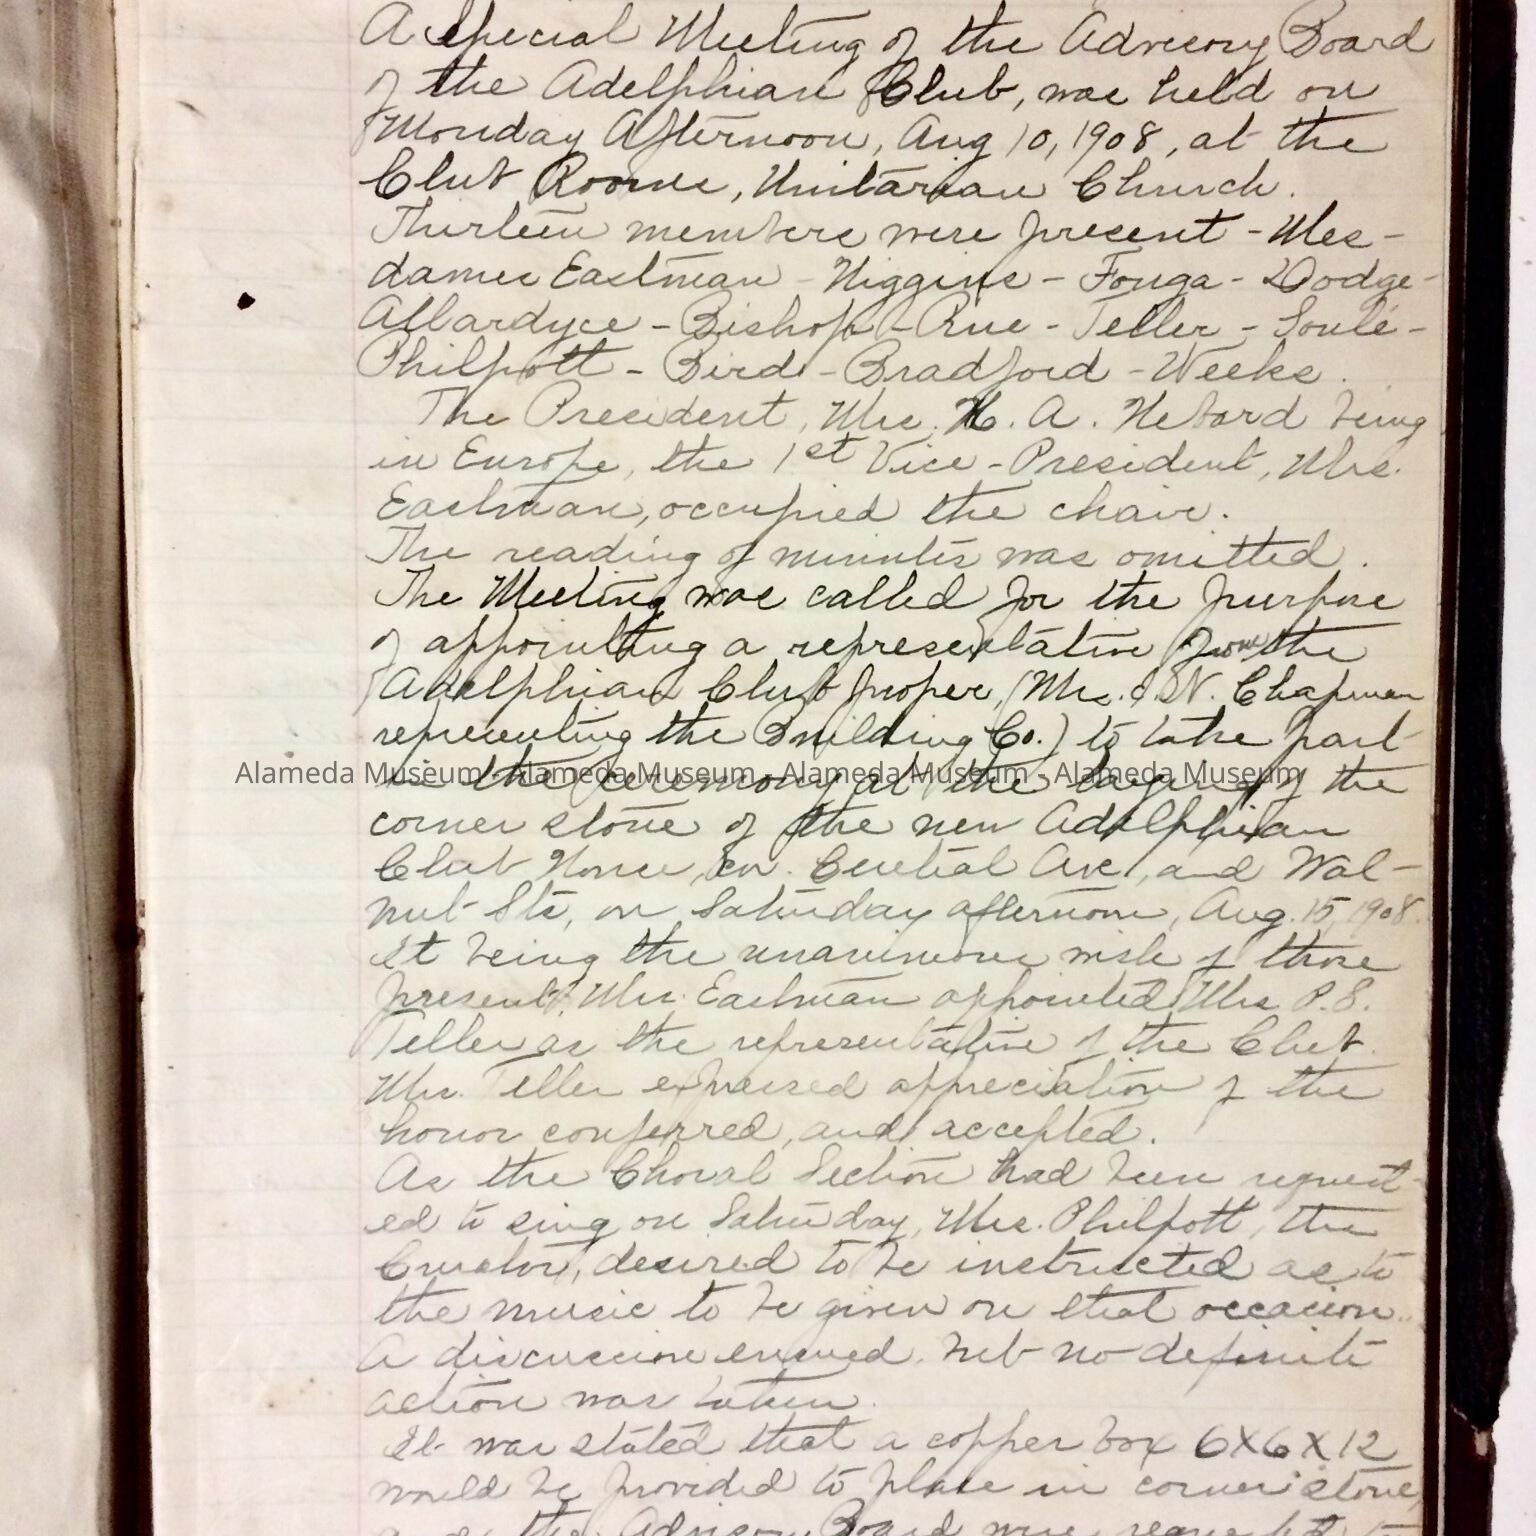 A Special Meeting of the Advisory Board
of the Adelphian Club, was held on
Monday Afternoon, Aug 10, 1908, at the
Club Rooms, Unitarian Church.
Thirteen members were present - Mes-
dames Eastman - Higgins - Fouga - Dodge -
Allardyce - Bishop - Rue - Teller - Soulé -
Philpott - Bird - Bradford - Weeks.
The President, Mrs. H. A. Hebard being
in Europe, the 1st Vice-President, Mrs.
Eastman, occupied the chair.
The reading of minutes was omitted.
The Meeting was called for the purpose
of appointing a representative from the
Adelphian Club proper, (Mrs. I. N. Chapman
representing the Building Co.) to take part
in the ceremony at the laying of the
Alameda Museum - Alameda Museum - Alameda Museum - Alameda Museum
corner stone of the new Adelphian
Club House, cor. Central Ave, and Wal-
nut Sts, on Saturday afternoon, Aug. 15, 1908.
It being the unanimous wish of those
present, Mrs. Eastman appointed Mrs P. S.
Teller as the representative of the Club.
Mrs. Teller expressed appreciation of the
honor conferred, and accepted.
As the Choral Section had been request-
ed to sing on Saturday, Mrs. Philpott, the
Curator, desired to be instructed as to
the music to be given on that occasion.
A discussion ensued, but no definite
action was taken.
It was stated that a copper box 6X6X12
would be provided to place in corner stone,
the Advisory Board were